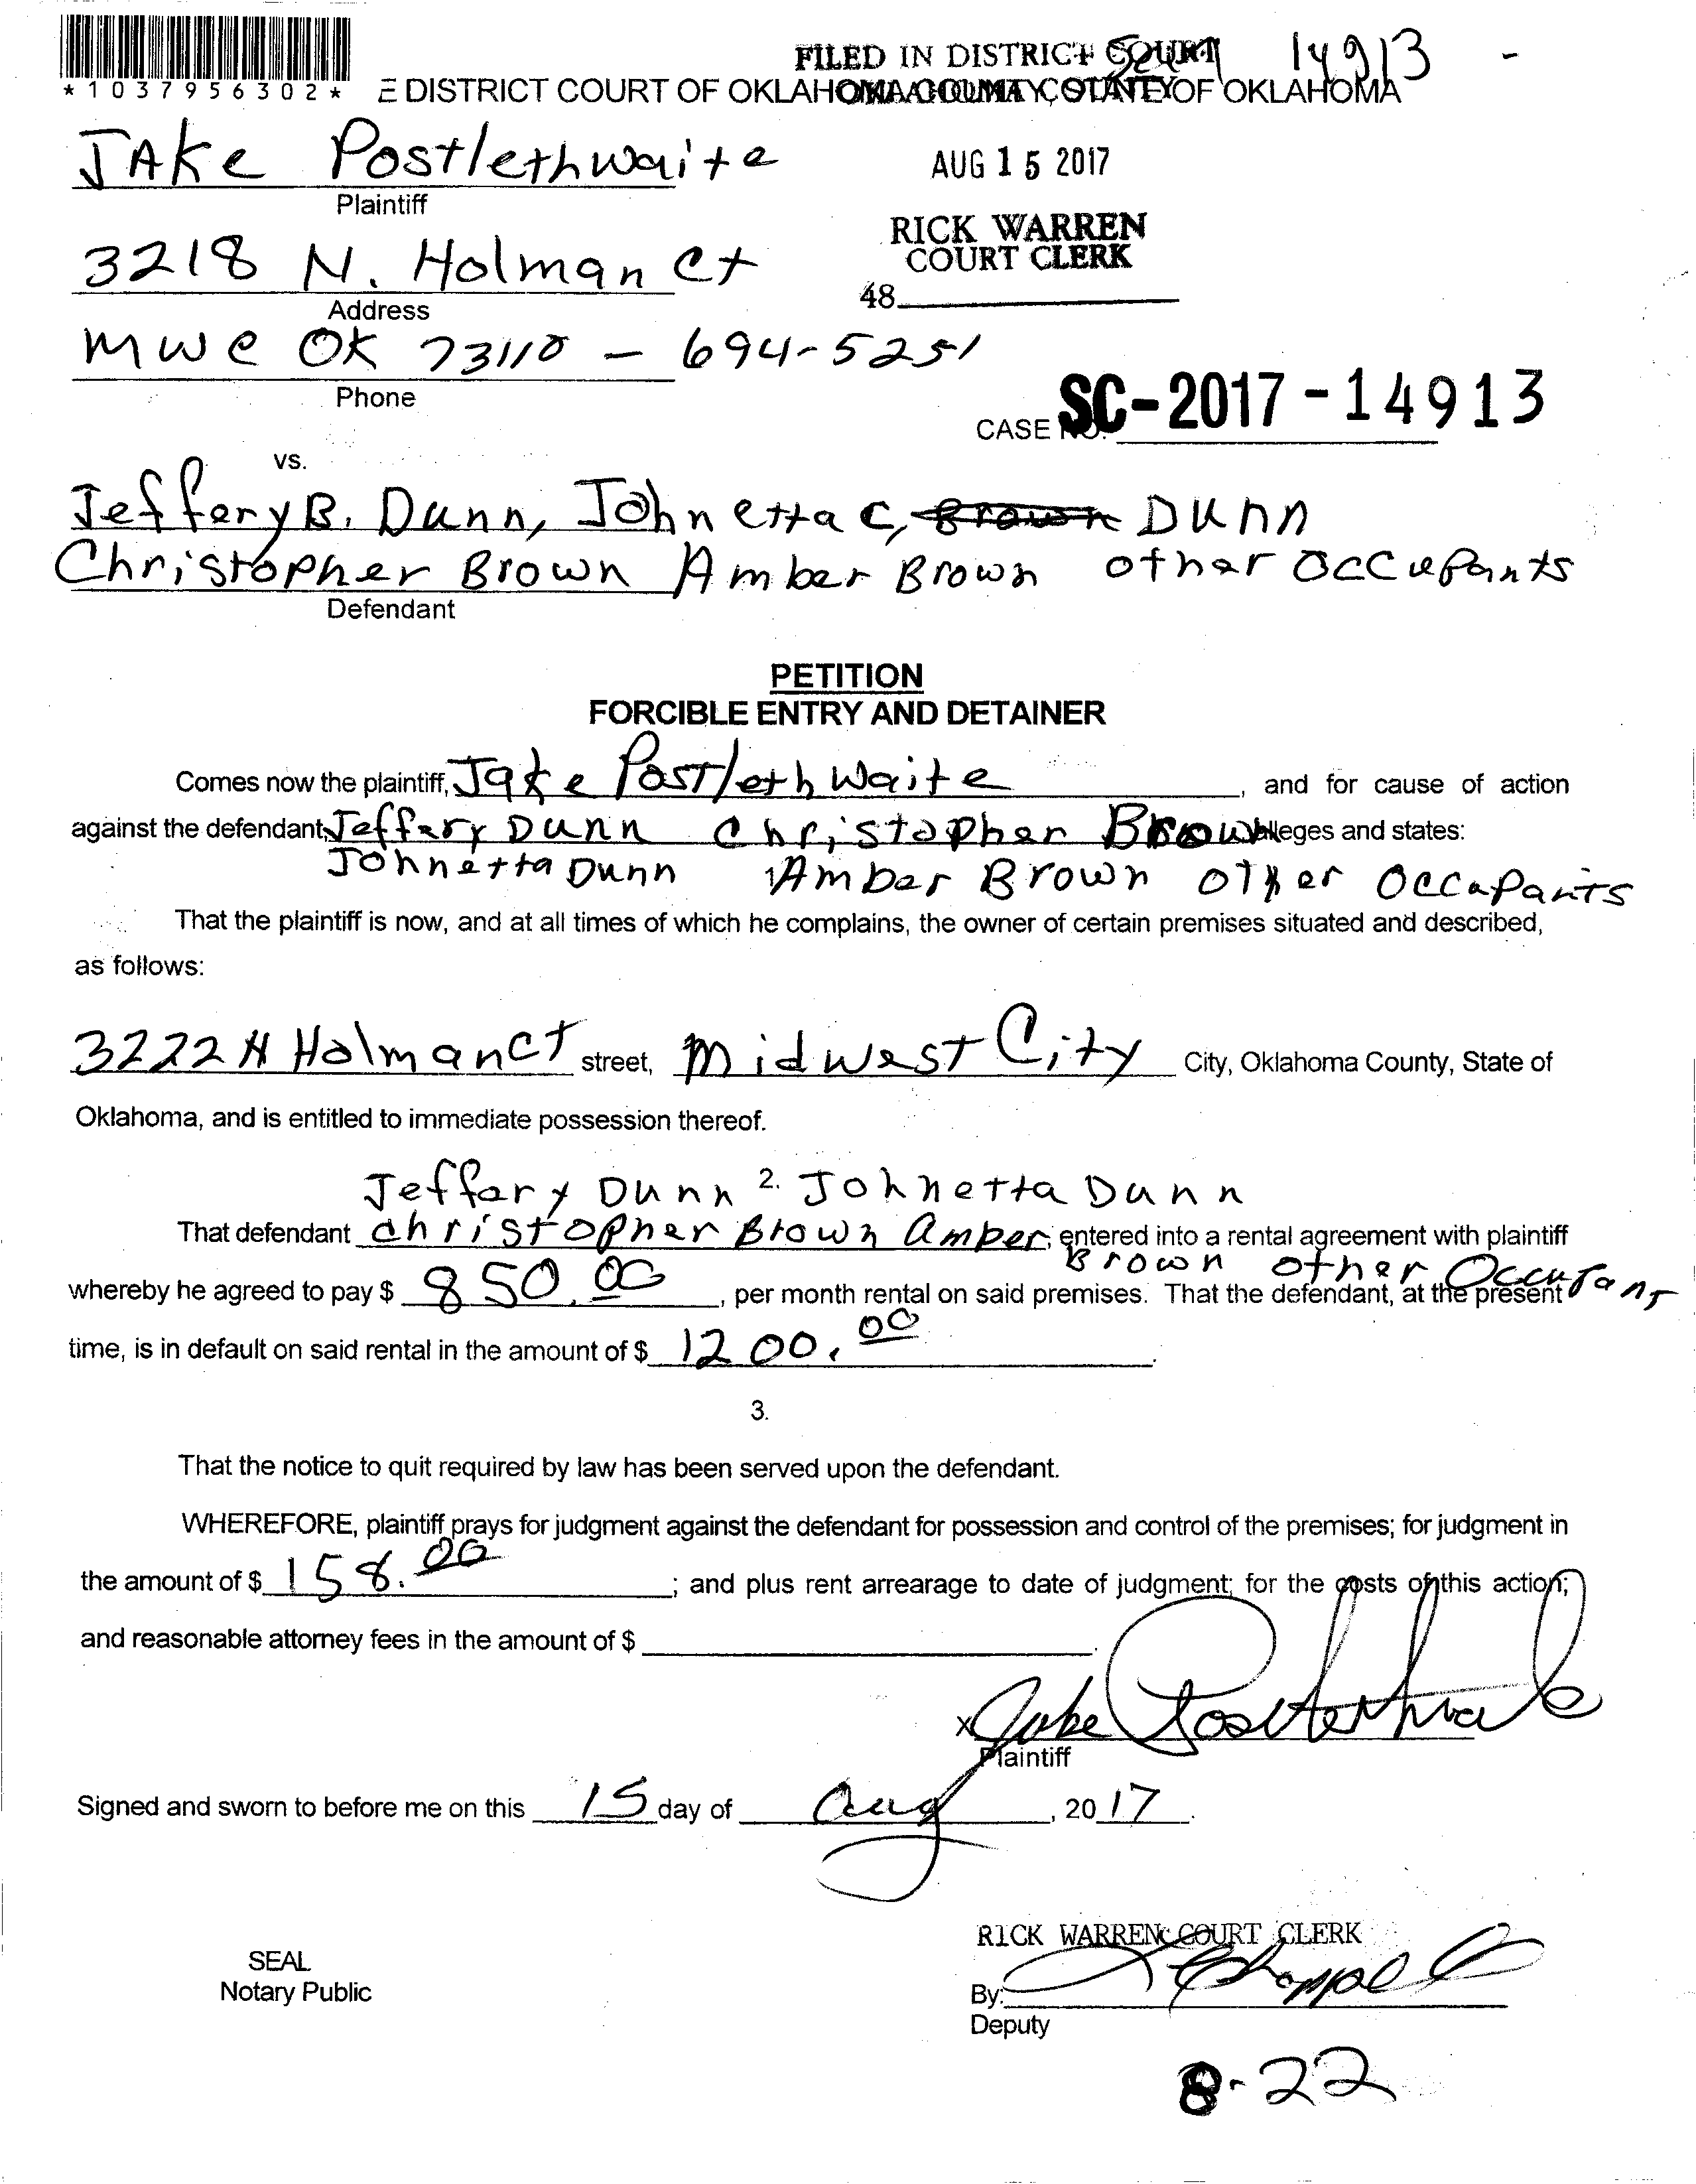 FILED IN DISTRICT COURT 14913 -
*1037956302* E DISTRICT COURT OF OKLAHOMA COUNTY, STATE OF OKLAHOMA
JAKe Postlethwaite
AUG 15 2017
Plaintiff
RICK WARREN
COURT CLERK
3218 N. Holman Ct
48
Address
MWC OK 73110 - 694-5251
Phone
CASE NO. SC-2017-14913
vs.
Jeffery B. Dunn, Johnetta C, Brown Dunn
Christopher Brown Amber Brown other Occupants
Defendant
PETITION
FORCIBLE ENTRY AND DETAINER
Comes now the plaintiff, Jake Postlethwaite, and for cause of action
against the defendant, Jeffery Dunn Christopher Brown alleges and states:
Johnetta Dunn Amber Brown other Occupants
That the plaintiff is now, and at all times of which he complains, the owner of certain premises situated and described,
as follows:
3222 N Holman CT street, Midwest City City, Oklahoma County, State of
Oklahoma, and is entitled to immediate possession thereof.
Jeffary Dunn 2. Johnetta Dunn
That defendant Christopher Brown Amber, entered into a rental agreement with plaintiff
Brown other Occupant
whereby he agreed to pay $ 850.00, per month rental on said premises. That the defendant, at the present
time, is in default on said rental in the amount of $ 1200.00.
3.
That the notice to quit required by law has been served upon the defendant.
WHEREFORE, plaintiff prays for judgment against the defendant for possession and control of the premises; for judgment in
the amount of $ 158.00; and plus rent arrearage to date of judgment; for the costs of this action;
and reasonable attorney fees in the amount of $
x Jake Postlethwaite
Plaintiff
Signed and sworn to before me on this 15 day of Aug, 2017.
RICK WARREN COURT CLERK
SEAL
Notary Public
By:
Deputy
8-22